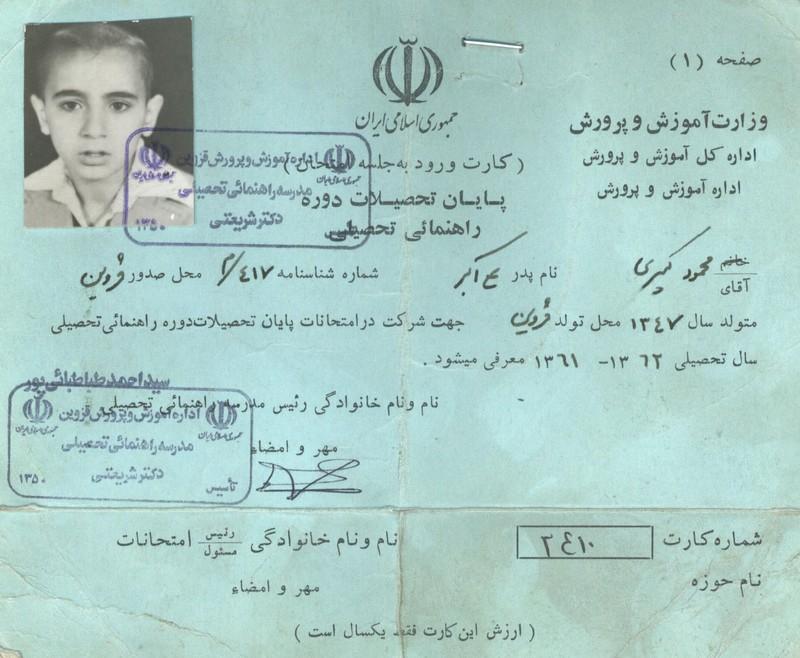 صفحه (۱)
جمهوری اسلامی ایران
وزارت آموزش و پرورش
اداره کل آموزش و پرورش
اداره آموزش و پرورش
( کارت ورود به جلسه امتحان )
پایان تحصیلات دوره
راهنمائی تحصیلی
اداره آموزش و پرورش قزوین
جمهوری اسلامی ایران
مدرسه راهنمائی تحصیلی
دکتر شریعتی
تأسیس ۱۳۵۰
خانم
آقای محمود نام پدر اکبر شماره شناسنامه ۴۱۷ محل صدور قزوین
متولد سال ۱۳۴۷ محل تولد قزوین جهت شرکت در امتحانات پایان تحصیلات دوره راهنمائی تحصیلی
سال تحصیلی ۱۳۶۲ - ۱۳۶۱ معرفی میشود .
سید احمد طباطبائی پور
نام و نام خانوادگی رئیس مدرسه راهنمائی تحصیلی
اداره آموزش و پرورش قزوین
جمهوری اسلامی ایران
مدرسه راهنمائی تحصیلی
دکتر شریعتی
تأسیس ۱۳۵۰
مهر و امضاء
شماره کارت ۲۴۱۰
نام و نام خانوادگی رئیس مسئول امتحانات
نام حوزه
مهر و امضاء
( ارزش این کارت فقط یکسال است )